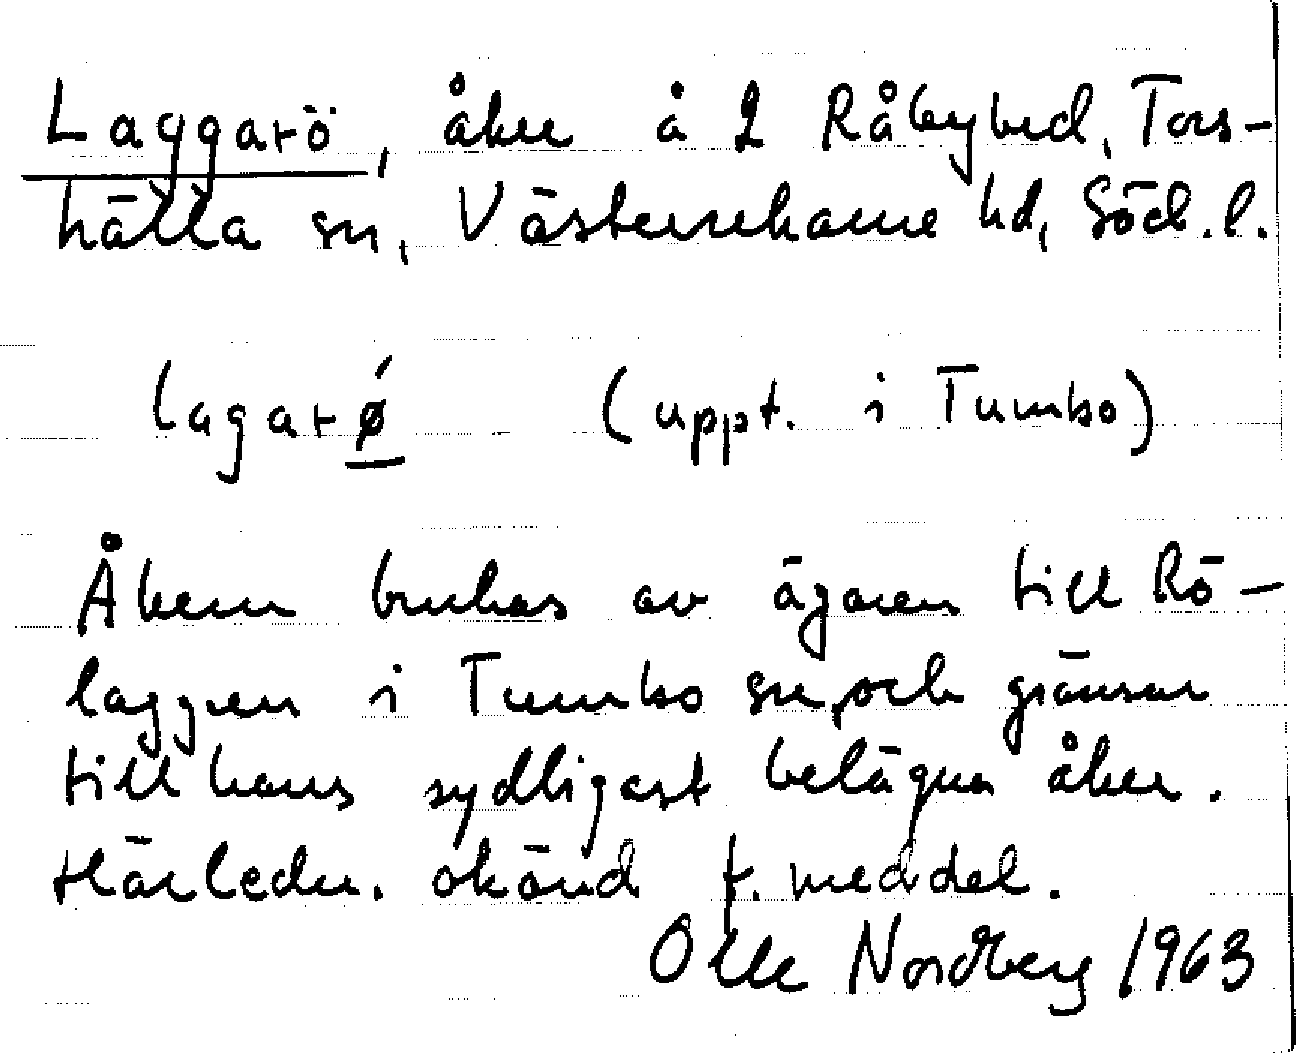 Laggarö, åker å 2 Råbylved, Tors-
hälla sn, Västerrekarne hd, Södl. l.
lagarǿ (uppt. i Tumbo)
Åkern brukas av ägaren till Rö-
laggren i Tumbo sn, och gränsar
till hans sydligast belägna åker.
Härledn. okänd f. meddel.
Olle Nordberg 1963